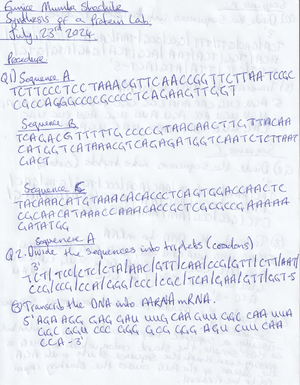 Eunice Mumba Shachile
Synthesis of a Protein Lab.
July, 23rd 2024
Procedure
Q1) Sequence A
TCTTCCCTCCTAAACGTTCAACCGGTTCTTAATCCGC
CGCCAGGGCCCCGCCCCTCAGAAGTTGGT
Sequence B
TCAGACGTTTTTGCCCCGTAACAACTTGTTACAA
CATGGTCATAAACGTCAGAGATGGTCAATCTCTTAAT
GACT
Sequence C
TACAAACATGTAAACACACCCTCAGTGGACCAACTC
CGCAACATAAACCAAACACCGCTCGCGCCGAAAAAA
GATATGG
Sequence A
Q2. Divide the Sequences into triplets (codons)
3'
TCT/TCC/CTC/CTA/AAC/GTT/CAA/CCG/GTT/CTT/AAT/
CCG/CCG/CCA/GGG/CCC/CGC/TCA/GAA/GTT/GGT-5
③ Transcribe the DNA into mRNA.
5' AGA AGG GAG GAU UUG CAA GUU GGC CAA UUA
GGC GGU CCC GGG GCG GGG AGU CUU CAA
CCA-3'